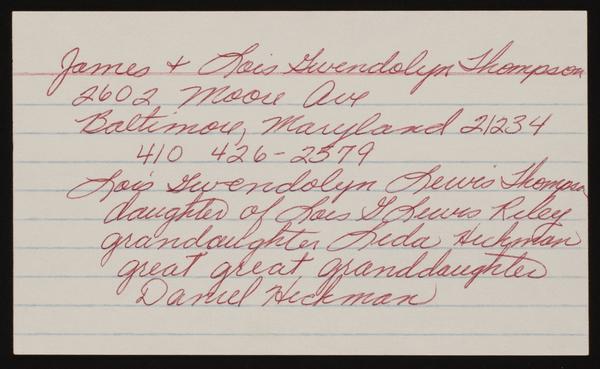 James + Lois Gwendolyn Thompson
2602 Moore Ave
Baltimore, Maryland 21234
410 426-2579
Lois Gwendolyn Lewis Thompson
daughter of Lois G Lewis Riley
grandaughter Leda Hickman
great great granddaughter
Daniel Hickman